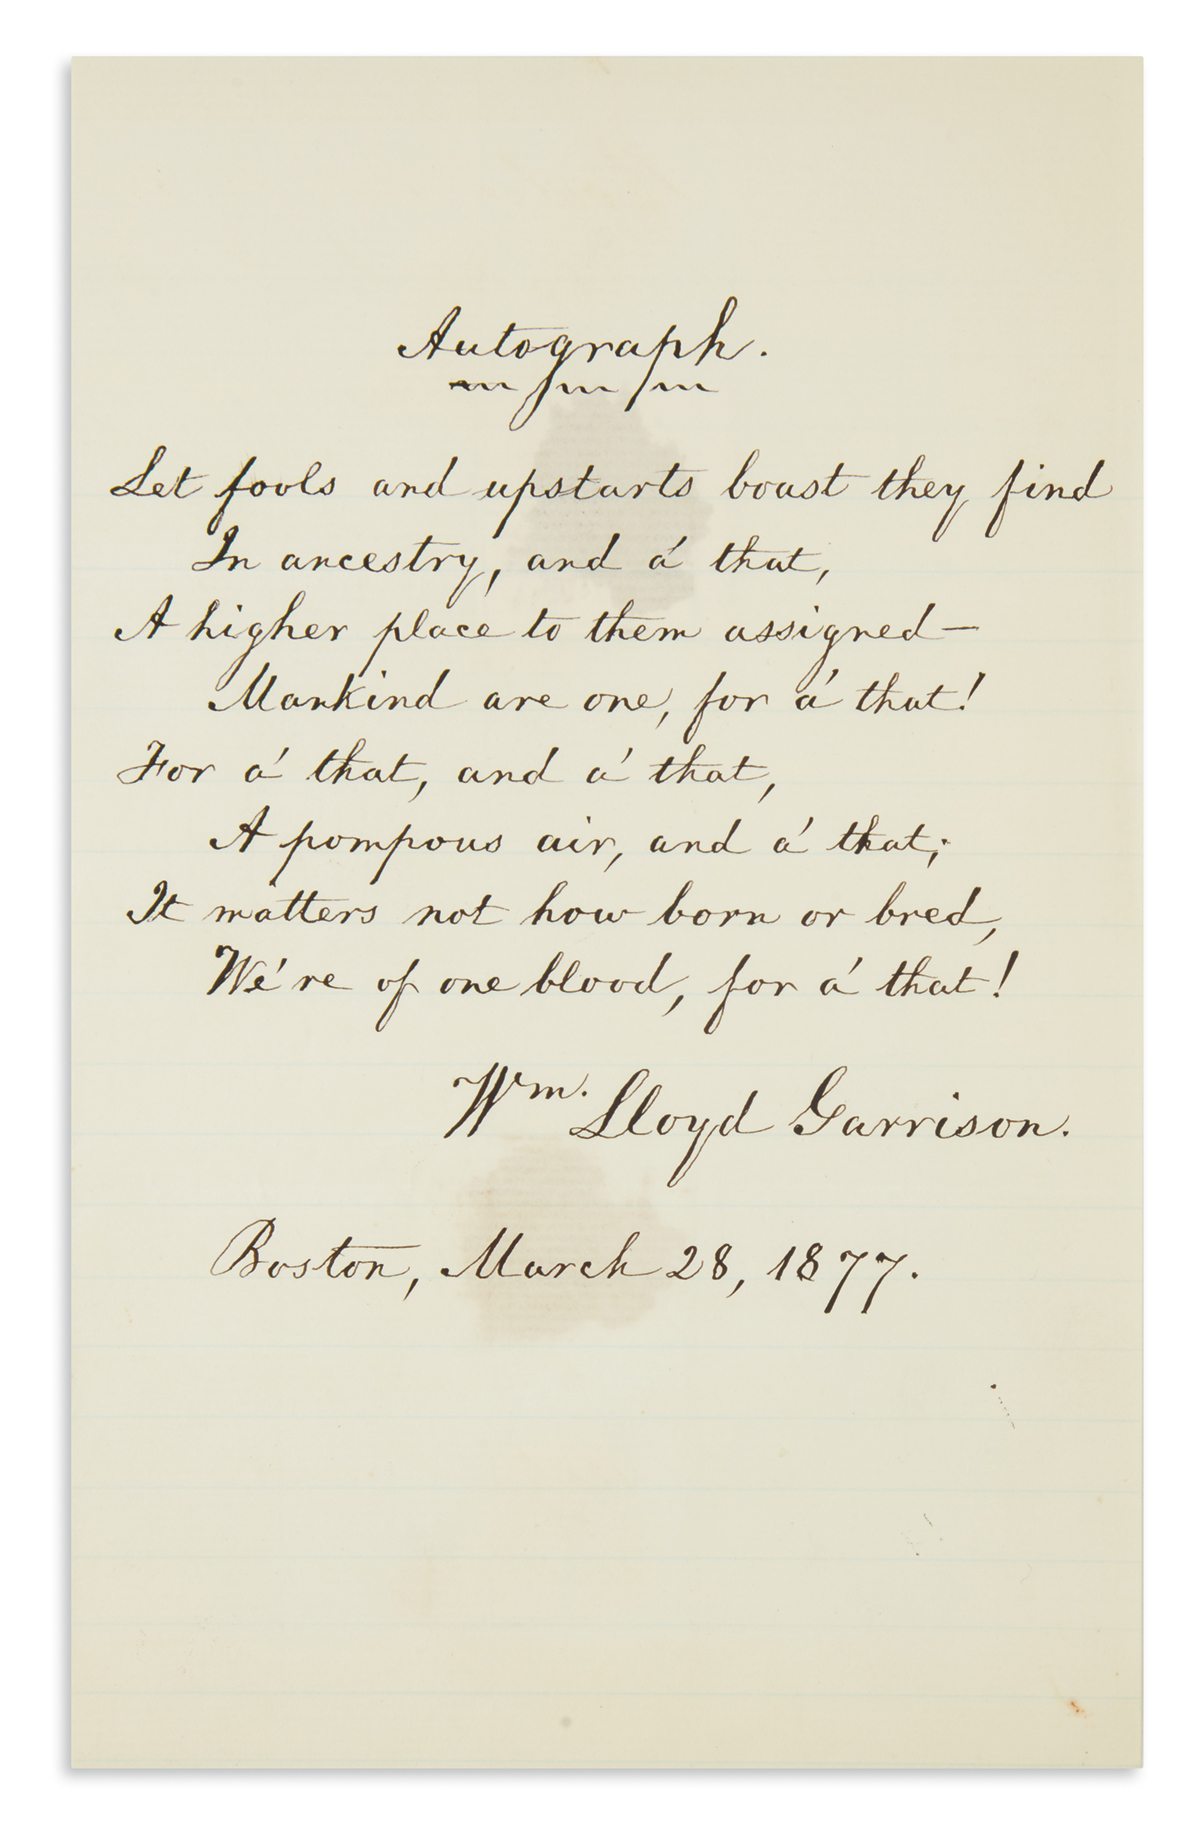 Autograph.
Let fools and upstarts boast they find
In ancestry, and a' that,
A higher place to them assigned—
Mankind are one, for a' that!
For a' that, and a' that,
A pompous air, and a' that;
It matters not how born or bred,
We're of one blood, for a' that!
Wm. Lloyd Garrison.
Boston, March 28, 1877.